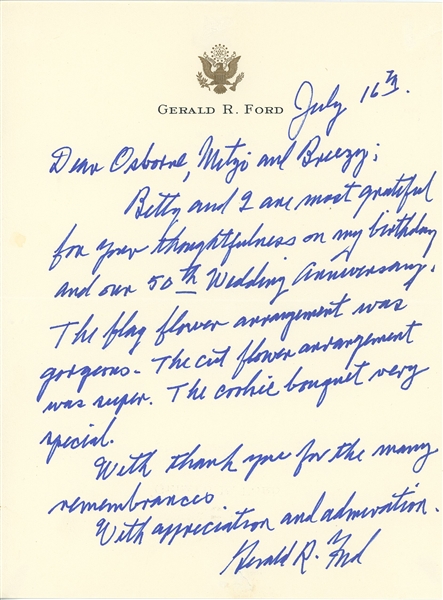 GERALD R. FORD
July 16th.
Dear Osborne, Mitzi and Breezy;
Betty and I are most grateful
for your thoughtfulness on my birthday
and our 50th Wedding Anniversary.
The flag flower arrangement was
gorgeous. The cut flower arrangement
was super. The cookie bouquet very
special.
With thank you for the many
remembrances
With appreciation and admiration.
Gerald R. Ford